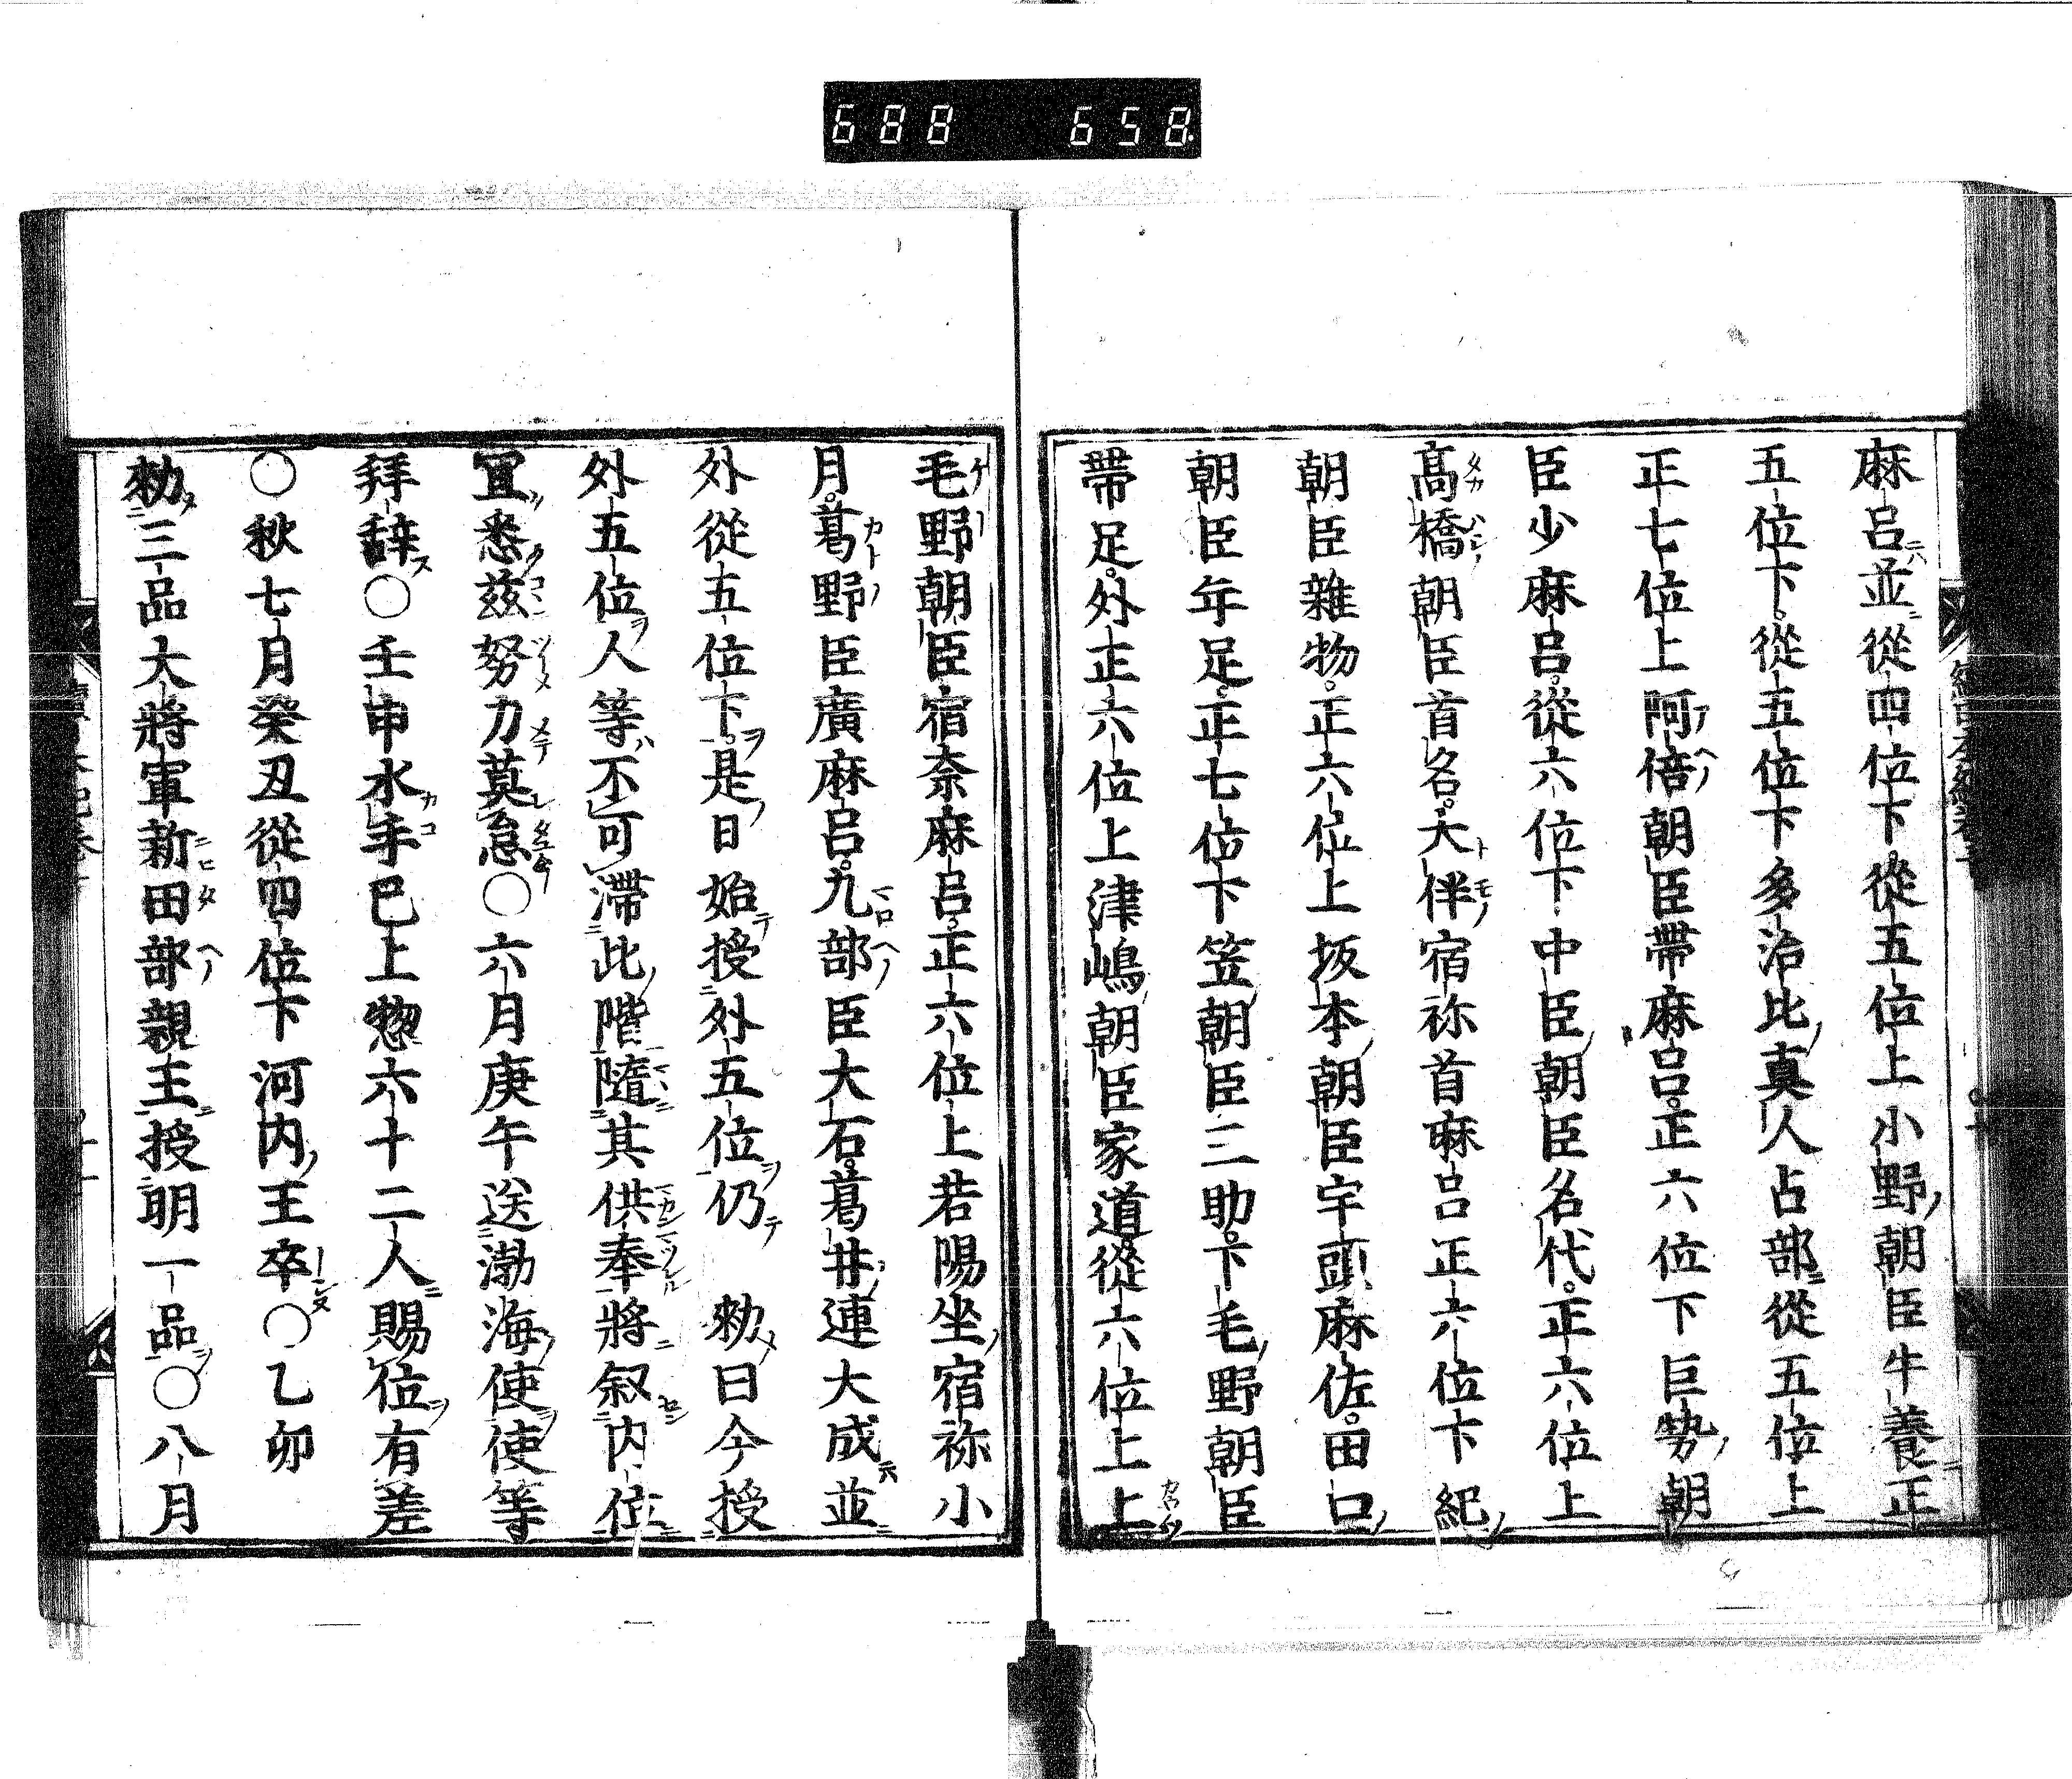 688 658
麻呂並從四位下從五位上小野朝臣牛養正
五位下。從五位下多治比真人占部從五位上
正七位上阿倍朝臣帶麻呂。正六位下巨勢朝
臣少麻呂。從六位下中臣朝臣名代。正六位上
髙橋朝臣首名。大伴宿祢首麻呂正六位下紀
朝臣雜物。正六位上坂本朝臣宇頭麻佐。田口
朝臣年足。正七位下笠朝臣三助。下毛野朝臣
帶足。外正六位上津嶋朝臣家道。從六位上上
毛野朝臣宿奈麻呂。正六位上若陽坐宿祢小
月。葛野臣廣麻呂。丸部臣大石。葛井連大成並
外從五位下。是日始授外五位仍 勑曰今授
外五位人等不可滯此階隨其供奉將叙内位
宜悉茲努力莫怠〇六月庚午送渤海使使等
拜辞〇壬申水手已上惣六十二人賜位有差
〇秋七月癸丑從四位下河内王卒〇乙卯
勑三品大將軍新田部親王授明一品〇八月